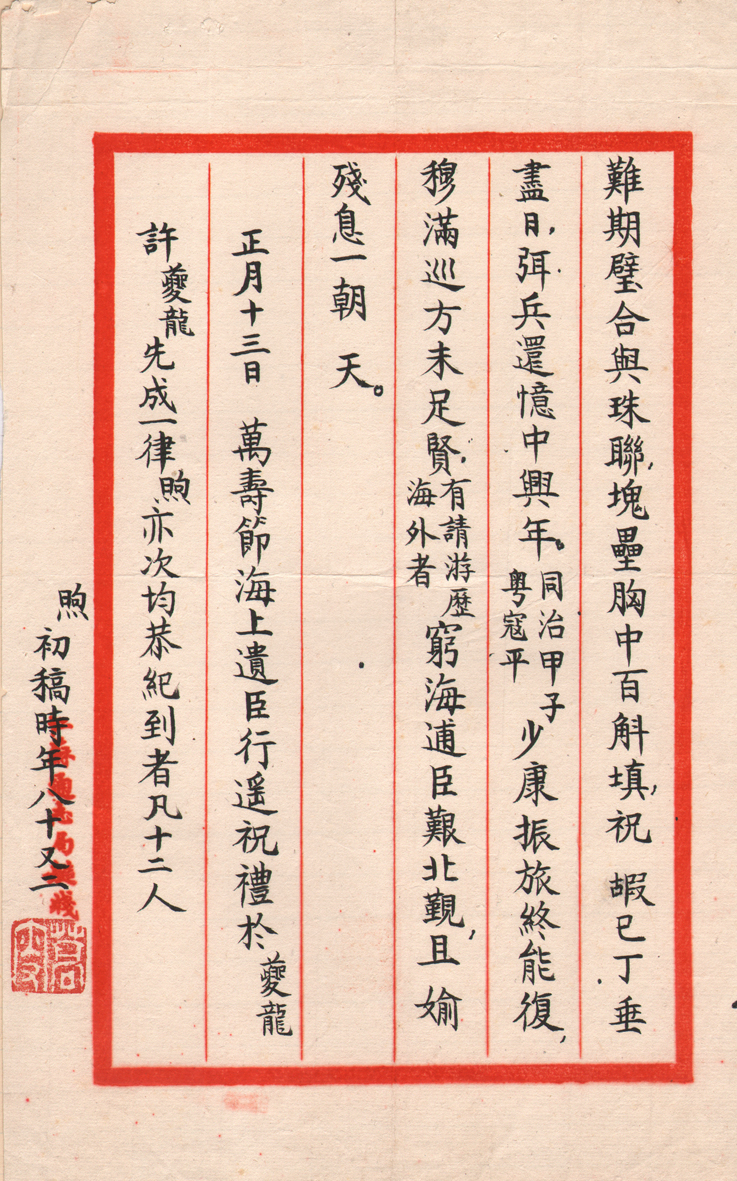 難期璧合與珠聯，塊壘胸中百斛填，祝 嘏已丁垂
盡日，弭兵還憶中興年。同治甲子粵寇平少康振旅終能復，
穆滿巡方未足賢，有請游歷海外者窮海逋臣艱北覲，且媮
殘息一朝 天。
正月十三日 萬壽節海上遺臣行遥祝禮於夔龍
許夔龍先成一律煦亦次均恭紀到者凡十二人
煦初稿時年八十又二